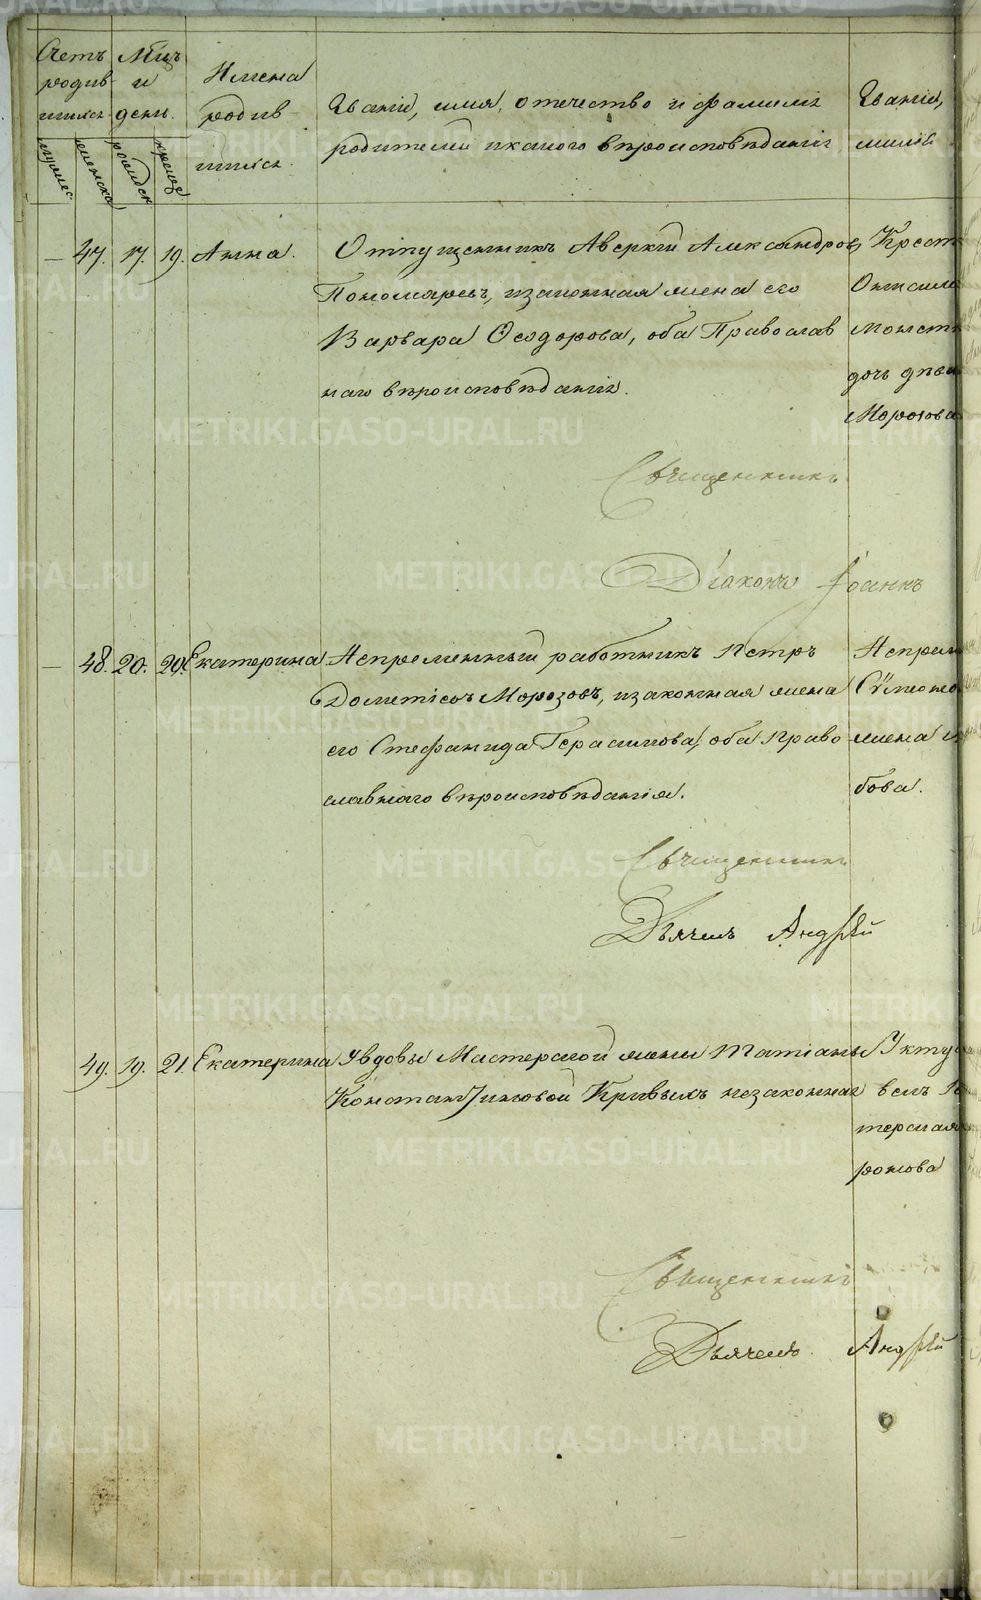 Счетъ родив шихся
Мѣц: и день.
Имена родив шихся.
Званіе, имя, отечество и фамилія
родителей и какого вѣроисповѣданія
Званіе,
мужес. женска рожден. крещ.
— 47. 17. 19. Анна.
Отпущенникъ Аверкій Александровъ
Пономаревъ, и законная жена его
Варвара Ѳеодорова, оба Православ
наго вѣроисповѣданія.
Крест
дочь дѣви
Морозова
Священникъ
Діаконъ Іоаннъ
— 48. 20. 20. Екатерина
Непремѣнный работникъ Петръ
Дометіевъ Морозовъ, и законная жена
его Стефанида Герасимова, оба право
славнаго вѣроисповѣданія.
Непрем
Сѷмеоно
жена
бова.
Священникъ
Дьячекъ Андрей
49. 19. 21. Екатерина
У вдовы Мастерской жены Татіаны
Константиновой Кривыхъ незаконная
Укту
терская
ронова
Священникъ
Дьячекъ Андрей
METRIKI.GASO-URAL.RU